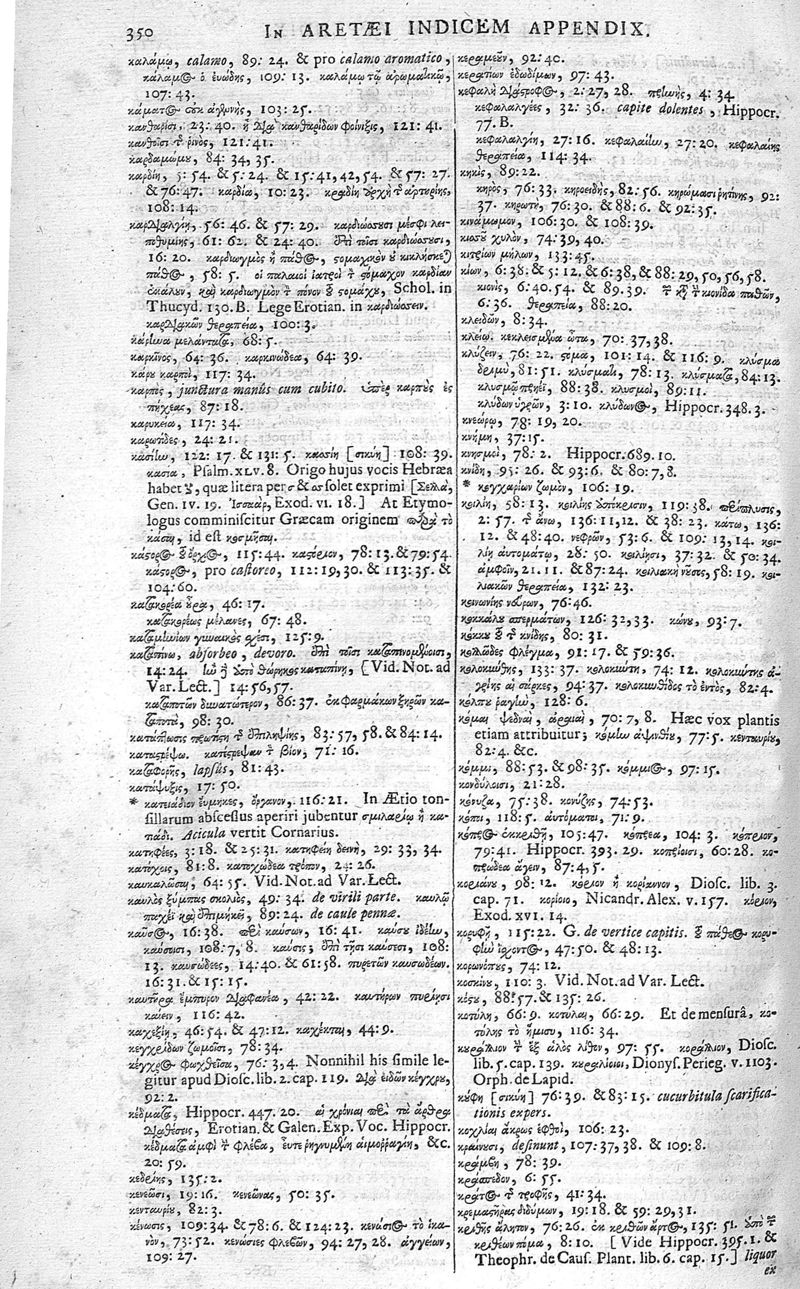 350 IN ARETÆI INDICEM APPENDIX.
καλάμῳ, calamo, 89: 24. & pro calamo aromatico,
καλάμῳ ὁ εὐώδης, 109: 13. καλάμῳ τῷ ἀρωματικῷ,
107: 43.
κάματος οὐκ 103: 25.
κανθαρίσι, 23: 40. ἢ διὰ κανθαρίδων φοίνιξις, 121: 41.
κανθοῖσι τ͂ ῥινὸς, 121: 41.
καρδαμώμου, 84: 34, 35.
καρδίη, 5: 54. & 5: 24. & 15: 41, 42, 54. & 57: 27.
& 76: 47. καρδία, 10: 23. κραδίη ἀρχὴ τ͂ ἀρτηρίης,
108: 14.
καρδιαλγίη, 56: 46. & 57: 29. καρδιώσσουσι μέσφι λει-
ποθυμίης, 61: 62. & 24: 40. ἐπὶ τοῖσι καρδιώσσουσι,
16: 20. καρδιωγμὸς ἢ πάθος, στομαχικὸν
πάθος, 58: 5. οἱ παλαιοὶ ἰατροὶ τ͂ στόμαχον καρδίαν
ἐκάλουν, καὶ καρδιωγμὸν τ͂ πόνον τοῦ στομάχου, Schol. in
Thucyd. 130. B. Lege Erotian. in καρδιώσσειν.
καρδιακῶν θεραπεία, 100: 3.
καρκῖνα μελάντατα, 68: 5.
καρκῖνος, 64: 36. καρκινώδεα, 64: 39.
κάρυ καρποὶ, 117: 34.
καρπὸς, junctura manûs cum cubito. ὑπὲρ καρποὺς ἐς
πήχεας, 87: 18.
καρυκεία, 117: 34.
καρωτίδες, 24: 21.
κασίῳ, 122: 17. & 131: 5. κασσίη [σικύη] 108: 39.
κασια, Psalm. XLV. 8. Origo hujus vocis Hebræa
habet ע, quæ litera per σ & σσ solet exprimi [Σελλὰ,
Gen. IV. 19. Ἰσσαχὰρ, Exod. VI. 18.] At Etymo-
logus comminiscitur Græcam originem παρὰ τὸ
κάσαι, id est κοσμῆσαι.
κάστορος ὄρχις, 115: 44. καστόριον, 78: 13. & 79: 54.
κάστορος, pro castoreo, 112: 19, 30. & 113: 35. &
104: 60.
κατακορέα οὖρα, 46: 17.
κατακορέως μέλανες, 67: 48.
καταμηνίων γυναικὸς σχέσι, 125: 9.
καταπίνω, absorbeo, devoro. ἐπὶ τοῖσι καταπινομένοισι,
14: 24. ὑπὸ θώρηκος καταπίνῃ, [Vid. Not. ad
Var. Lect.] 14: 56, 57.
καταποτῶν δυνατώτερον, 86: 37. ἐκ φαρμάκων ξηρῶν κα-
ταποτὰ, 98: 30.
κατάπτωσις πρωτίστη τ͂ ἐπιληψίης, 83: 57, 58. & 84: 14.
καταστρέψω. κατέστρεψαν τ͂ βίον, 71: 16.
καταφορῆς, lapsus, 81: 43.
κατάψυξις, 17: 50.
* κατειάδιον εὔμηκες, ὄργανον, 116: 21. In Ætio ton-
sillarum abscessus aperiri jubentur σμιλαρίῳ ἢ κα-
πάδι. Acicula vertit Cornarius.
κατηφέες, 3: 18. & 25: 31. κατηφείη δεινὴ, 29: 33, 34.
κατόχοις, 81: 8. κατοχώδεα τρόπον, 24: 26.
καυκαλῶσαι, 64: 55. Vid. Not. ad Var. Lect.
καυλὸς ξύμπας σκολιὸς, 49: 34. de virili parte. καυλῷ
παχεῖ καὶ ἐπιμήκει, 89: 24. de caule pennæ.
καῦσος, 16: 38. περὶ καύσων, 16: 41. καύσου ἰδέῃ,
καύσεσι, 108: 7, 8. καῦσις; ἐπὶ τῇσι καύσεσι, 108:
13. καυσώδεες, 14: 40. & 61: 58. πυρετῶν καυσωδέων.
16: 31. & 15: 15.
καυτῆρα ἔμπυρον διαφανέα, 42: 22. καυτήρων πυρίῃσι
καίειν, 116: 42.
καχεξίη, 46: 54. & 47: 12. καχέκται, 44: 9.
κεγχρίδων ζωμοῖσι, 78: 34.
κέγχρος φωχθεῖσα, 76: 3, 4. Nonnihil his simile le-
gitur apud Diosc. lib. 2. cap. 119. διὰ εἰδῶν κέγχρου,
92: 2.
κέδματα, Hippocr. 447. 20. αἱ χρόνιαι περὶ τὰ ἄρθρα
διαθέσεις, Erotian. & Galen. Exp. Voc. Hippocr.
κέδματα ἀμφὶ τ͂ φλέβα, εὖτε ῥηγνυμένη αἱμορραγίη, &c.
20: 59.
κεδρίης, 135: 2.
κενεῶσι, 19: 16. κενεῶνας, 50: 35.
κενταυρίου, 82: 3.
κένωσις, 109: 34. & 78: 6. & 124: 23. κενώσιος τὸ ἱκα-
νὸν, 73: 52. κενώσιες φλεβῶν, 94: 27, 28. ἀγγείων,
109: 27.
κεραμεῦν, 92: 40.
κεραπίων ἐδωδίμων, 97: 43.
κεφαλὴ διάστροφος, 2: 27, 28. 4: 34.
κεφαλαλγέες, 32: 36. capite dolentes, Hippocr.
77. B.
κεφαλαλγίη, 27: 16. κεφαλαίῳ, 27: 20. κεφαλαίης
θεραπεία, 114: 34.
κηκὶς, 89: 22.
κηρὸς, 76: 33. κηροειδὴς, 82: 56. κηρώμασι ῥητίνης, 92:
37. κηρωτῆ, 76: 30. & 88: 6. & 92: 35.
κινάμωμον, 106: 30. & 108: 39.
κισσοῦ χυλὸν, 74: 39, 40.
κιτρίων μήλων, 133: 45.
κίων, 6: 38. & 5: 12. & 6: 38, & 88: 29, 50, 56, 58.
κιονὶς, 6: 40. 54. & 89. 39. τῶν κατὰ τ͂ κιονίδα παθῶν,
6: 36. θεραπεία, 88: 20.
κλειδῶν, 8: 34.
κλείω. κεκλεισμένα ὦτα, 70: 37, 38.
κλύζειν, 76: 22. στόμα, 101: 14. & 116: 9. κλύσμα
δριμὺ, 81: 51. κλύσμασι, 78: 13. κλύσματα, 84: 13.
κλυσμῷ 88: 38. κλυσμοὶ, 89: 11.
κλύδων ὑγρῶν, 3: 10. κλύδωνος, Hippocr. 348. 3.
κνεώρῳ, 78: 19, 20.
κνήμη, 37: 15.
κνησμοὶ, 78: 2. Hippocr. 689. 10.
κνίδη, 95: 26. & 93: 6. & 80: 7, 8.
* κεγχαρίων ζωμὸν, 106: 19.
κοιλίη, 58: 13. κοιλίης ὑπέκκρισιν, 119: 38. περίπλυσις,
2: 57. τ͂ ἄνω, 136: 11, 12. & 38: 23. κάτω, 136:
12. & 48: 40. νεφρῶν, 53: 6. & 109: 13, 14. κοι-
λίη αὐτομάτῳ, 28: 50. κοιλίῃσι, 37: 32. & 50: 34.
ἀμφοῖν, 21. 11. & 87: 24. κοιλιακὴ νοῦσος, 58: 19. κοι-
λιακῶν θεραπεία, 132: 23.
κοινωνίης νεύρων, 76: 46.
κοκκάλου σπερμάτων, 126: 32, 33. κώνου, 93: 7.
κόκκου τ͂ κνίδης, 80: 31.
κολλῶδες φλέγμα, 91: 17. & 59: 36.
κολοκύνθης, 133: 37. κολοκύντη, 74: 12. κολοκύντης ἀ-
γρίης αἱ σάρκες, 94: 37. κολοκυνθίδος τὸ ἐντὸς, 82: 4.
κόλπου ῥαγίῳ, 128: 6.
κόμαι ψεδναὶ, ἀραιαὶ, 70: 7, 8. Hæc vox plantis
etiam attribuitur; κόμην ἀψινθίου, 77: 5. κενταυρίου,
82: 4. &c.
κόμμι, 88: 53. & 98: 35. κόμμιος, 97: 15.
κονδύλοισι, 21: 28.
κόνυζα, 75: 38. κονύζης, 74: 53.
κόποι, 118: 5. αὐτόματοι, 71: 9.
κόπρος ἐκκριθῇ, 105: 47. κόπρεα, 104: 3. κόπριον,
79: 41. Hippocr. 393. 29. κοπρίοισι, 60: 28. κο-
πρώδεα ἄγειν, 87: 4, 5.
κοριάνου, 98: 12. κόριον ἢ κορίαννον, Diosc. lib. 3.
cap. 71. κορίοιο, Nicandr. Alex. v. 157. κόριον,
Exod. XVI. 14.
κορυφῆ, 115: 22. G. de vertice capitis. τοῦ πάθεος κορυ-
φὴν ἴσχοντος, 47: 50. & 48: 13.
κορωνόπους, 74: 12.
κοσκίνῳ, 110: 3. Vid. Not. ad Var. Lect.
κόστου, 88: 57. & 135: 26.
κοτύλη, 66: 9. κοτύλαι, 66: 29. Et de mensurâ, κο-
τύλης τὸ ἥμισυ, 116: 34.
κουράλιον τ͂ ἐξ ἁλὸς λίθον, 97: 55. κοράλλιον, Diosc.
lib. 5. cap. 139. κουραλίοιο, Dionys. Perieg. v. 1103.
Orph. de Lapid.
κούφη [σικύη] 76: 39. & 83: 15. cucurbitula scarifica-
tionis expers.
κοχλίαι ἄκρως ἑφθοὶ, 106: 23.
κραίνουσι, desinunt, 107: 37, 38. & 109: 8.
κράμβη, 78: 39.
κράσπεδον, 6: 55.
κράτος τ͂ τροφῆς, 41: 34.
κρεμαστῆρας διδύμων, 19: 18. & 59: 29, 31.
κριθῆς ἄλητον, 76: 26. ἐκ κριθῶν ἄρτος, 135: 51. ὑπὸ τῶν
κριθέων πόμα, 8: 10. [Vide Hippocr. 395. 1. &
Theophr. de Caus. Plant. lib. 6. cap. 15.] liquor
ex